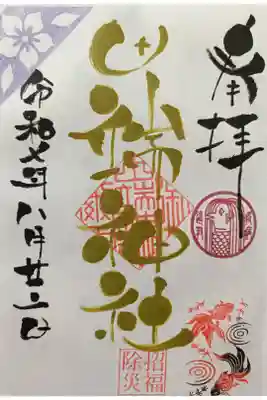 奉拝
山祇神社
令和七年八月廿二日
招福
除災